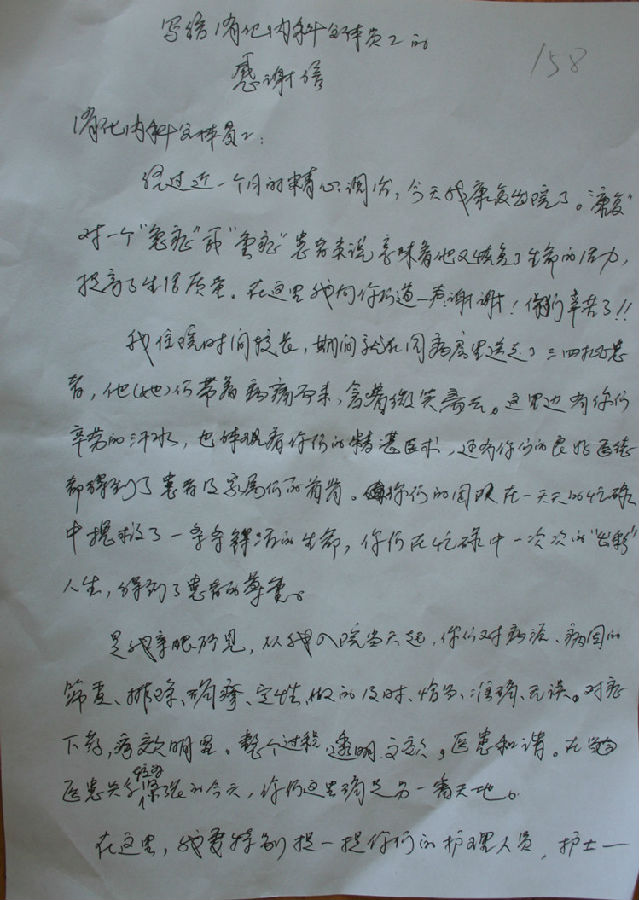 写给消化内科全体员工的
感谢信
158
消化内科全体员工:
经过近一个月的精心调治,今天我康复出院了。"康复"
对一个"急症"或"重症"患者来说意味着他又恢复了生命的活力,
提高了生活质量。在这里我向你们道一声谢谢!你们辛苦了!!
我住院时间较长,期间就在同病房里送走了三四批患
者,他(她)们带着病痛而来,含着微笑离去。这里边有你们
辛劳的汗水,也体现着你们的精湛医术,还有你们的良好医德
都得到了患者及家属们的首肯。你们的团队在一天天的忙碌
中拯救了一条条鲜活的生命,你们在忙碌中一次次的"出彩"
人生,得到了患者的尊重。
是我亲眼所见,从我入院当天起,你们对病症、病因的
筛查、排除、确疹、定性,做的及时、恰当、准确、无误。对症
下药,疗效明显。整个过程透明文明,医患和谐。在
医患关系紧张的今天,你们这里确是另一番天地。
在这里,我要特别提一提你们的护理人员,护士一